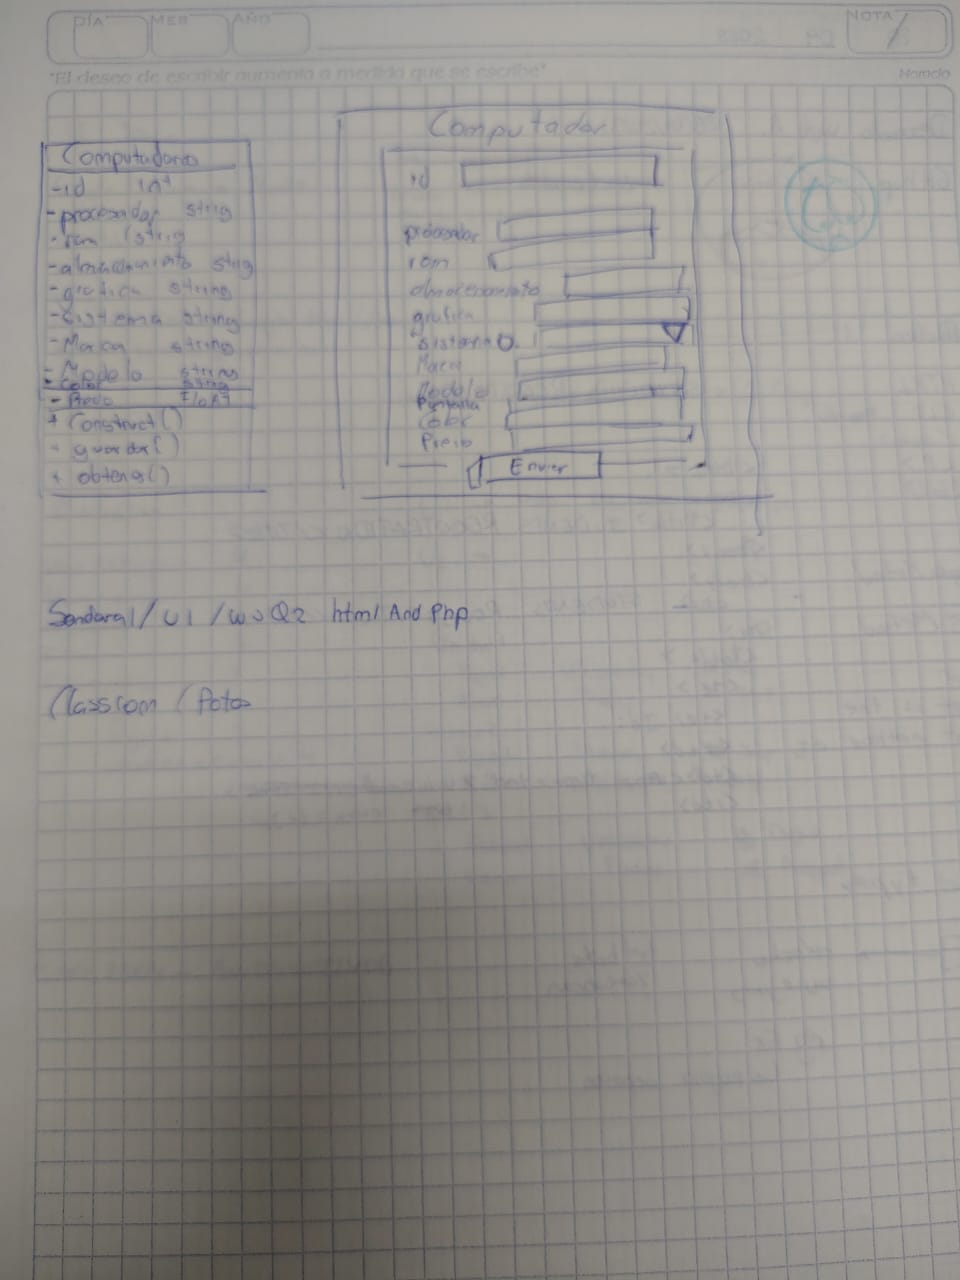 DÍA MES AÑO NOTA
"El deseo de escribir aumenta a medida que se escribe"
Norma
Computadora
-id int
-procesador string
-ram string
-almacenamiento string
-grafica string
-Sistema string
-Marca string
-Modelo string
-Color string
-Precio FLOAT
+ Construct()
+ guardar()
+ obtener()
Computador
id
procesador
ram
almacenamiento
grafica
sistema O.
Marca
Modelo
Pantalla
Color
Precio
Enviar
/ U1 / html And Php